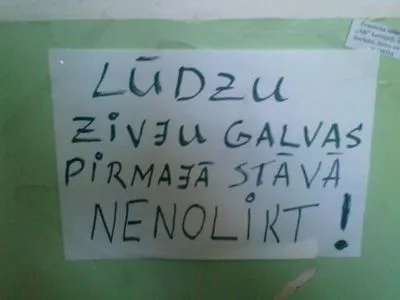 LŪDZU
ZIVJU GALVAS
PIRMAJĀ STĀVĀ
NENOLIKT!